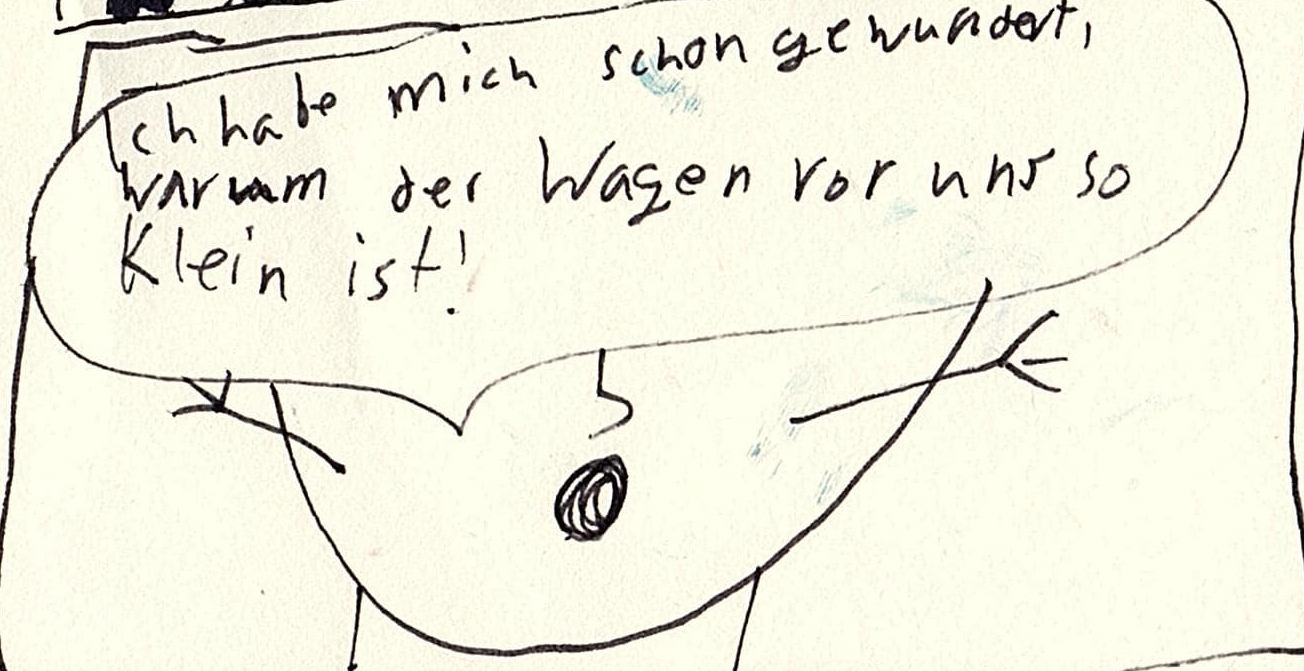 Ich habe mich schon gewundert,
warum der Wagen vor uns so
Klein ist!